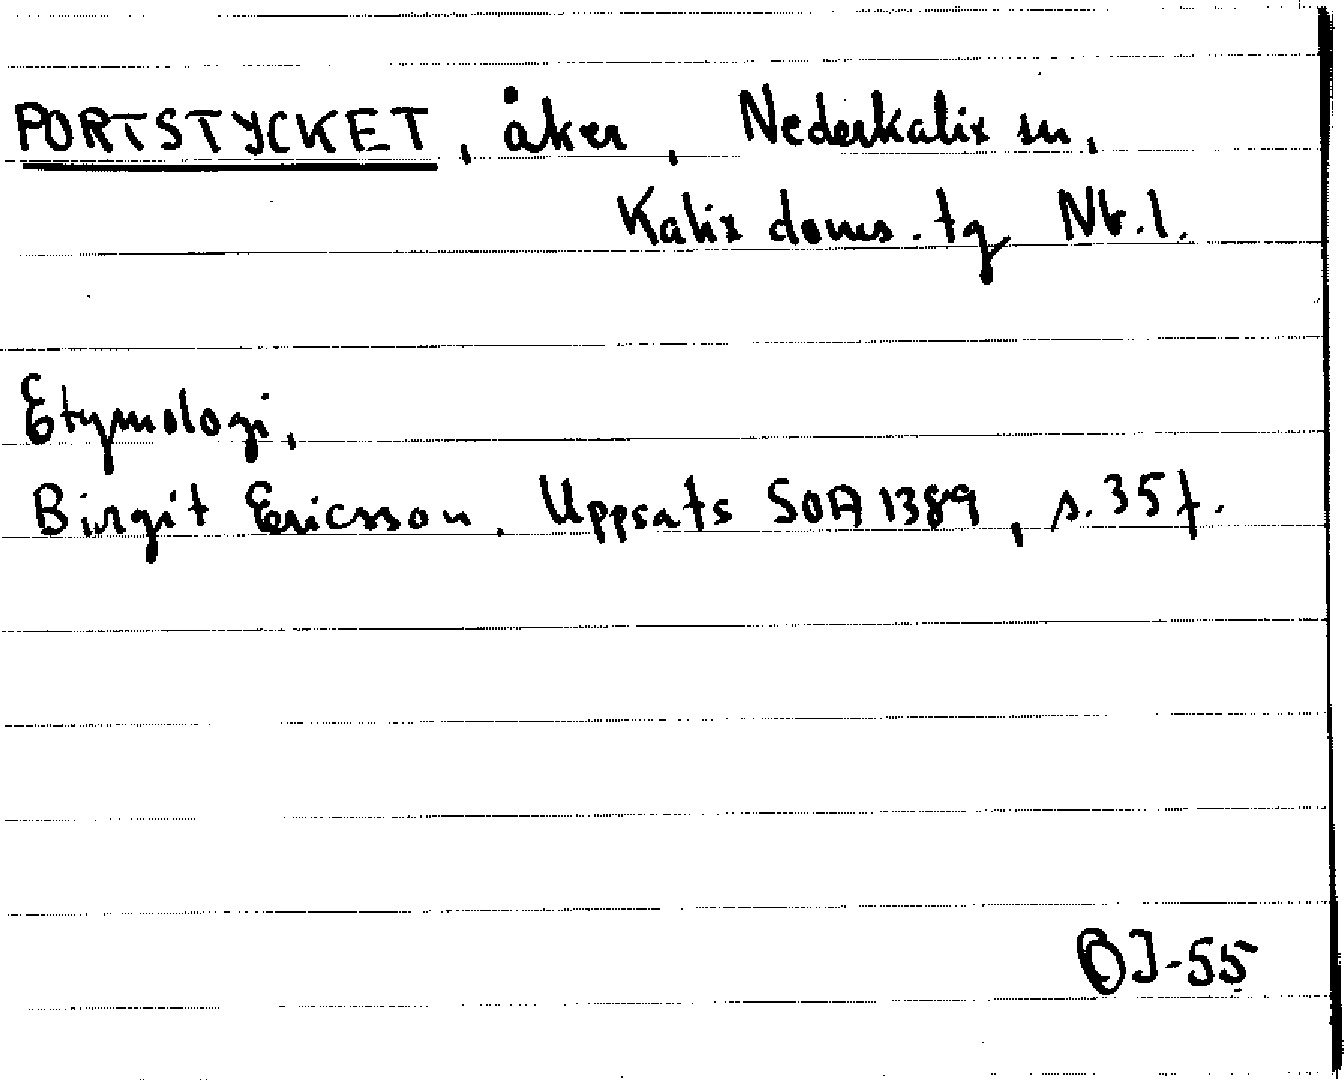 PORTSTYCKET, åker, Nederkalix sn,
Kalix doms. tg Nb. l.
Etymologi,
Birgit Ericsson. Uppsats SOA 1389, s. 35 f.
OJ-55